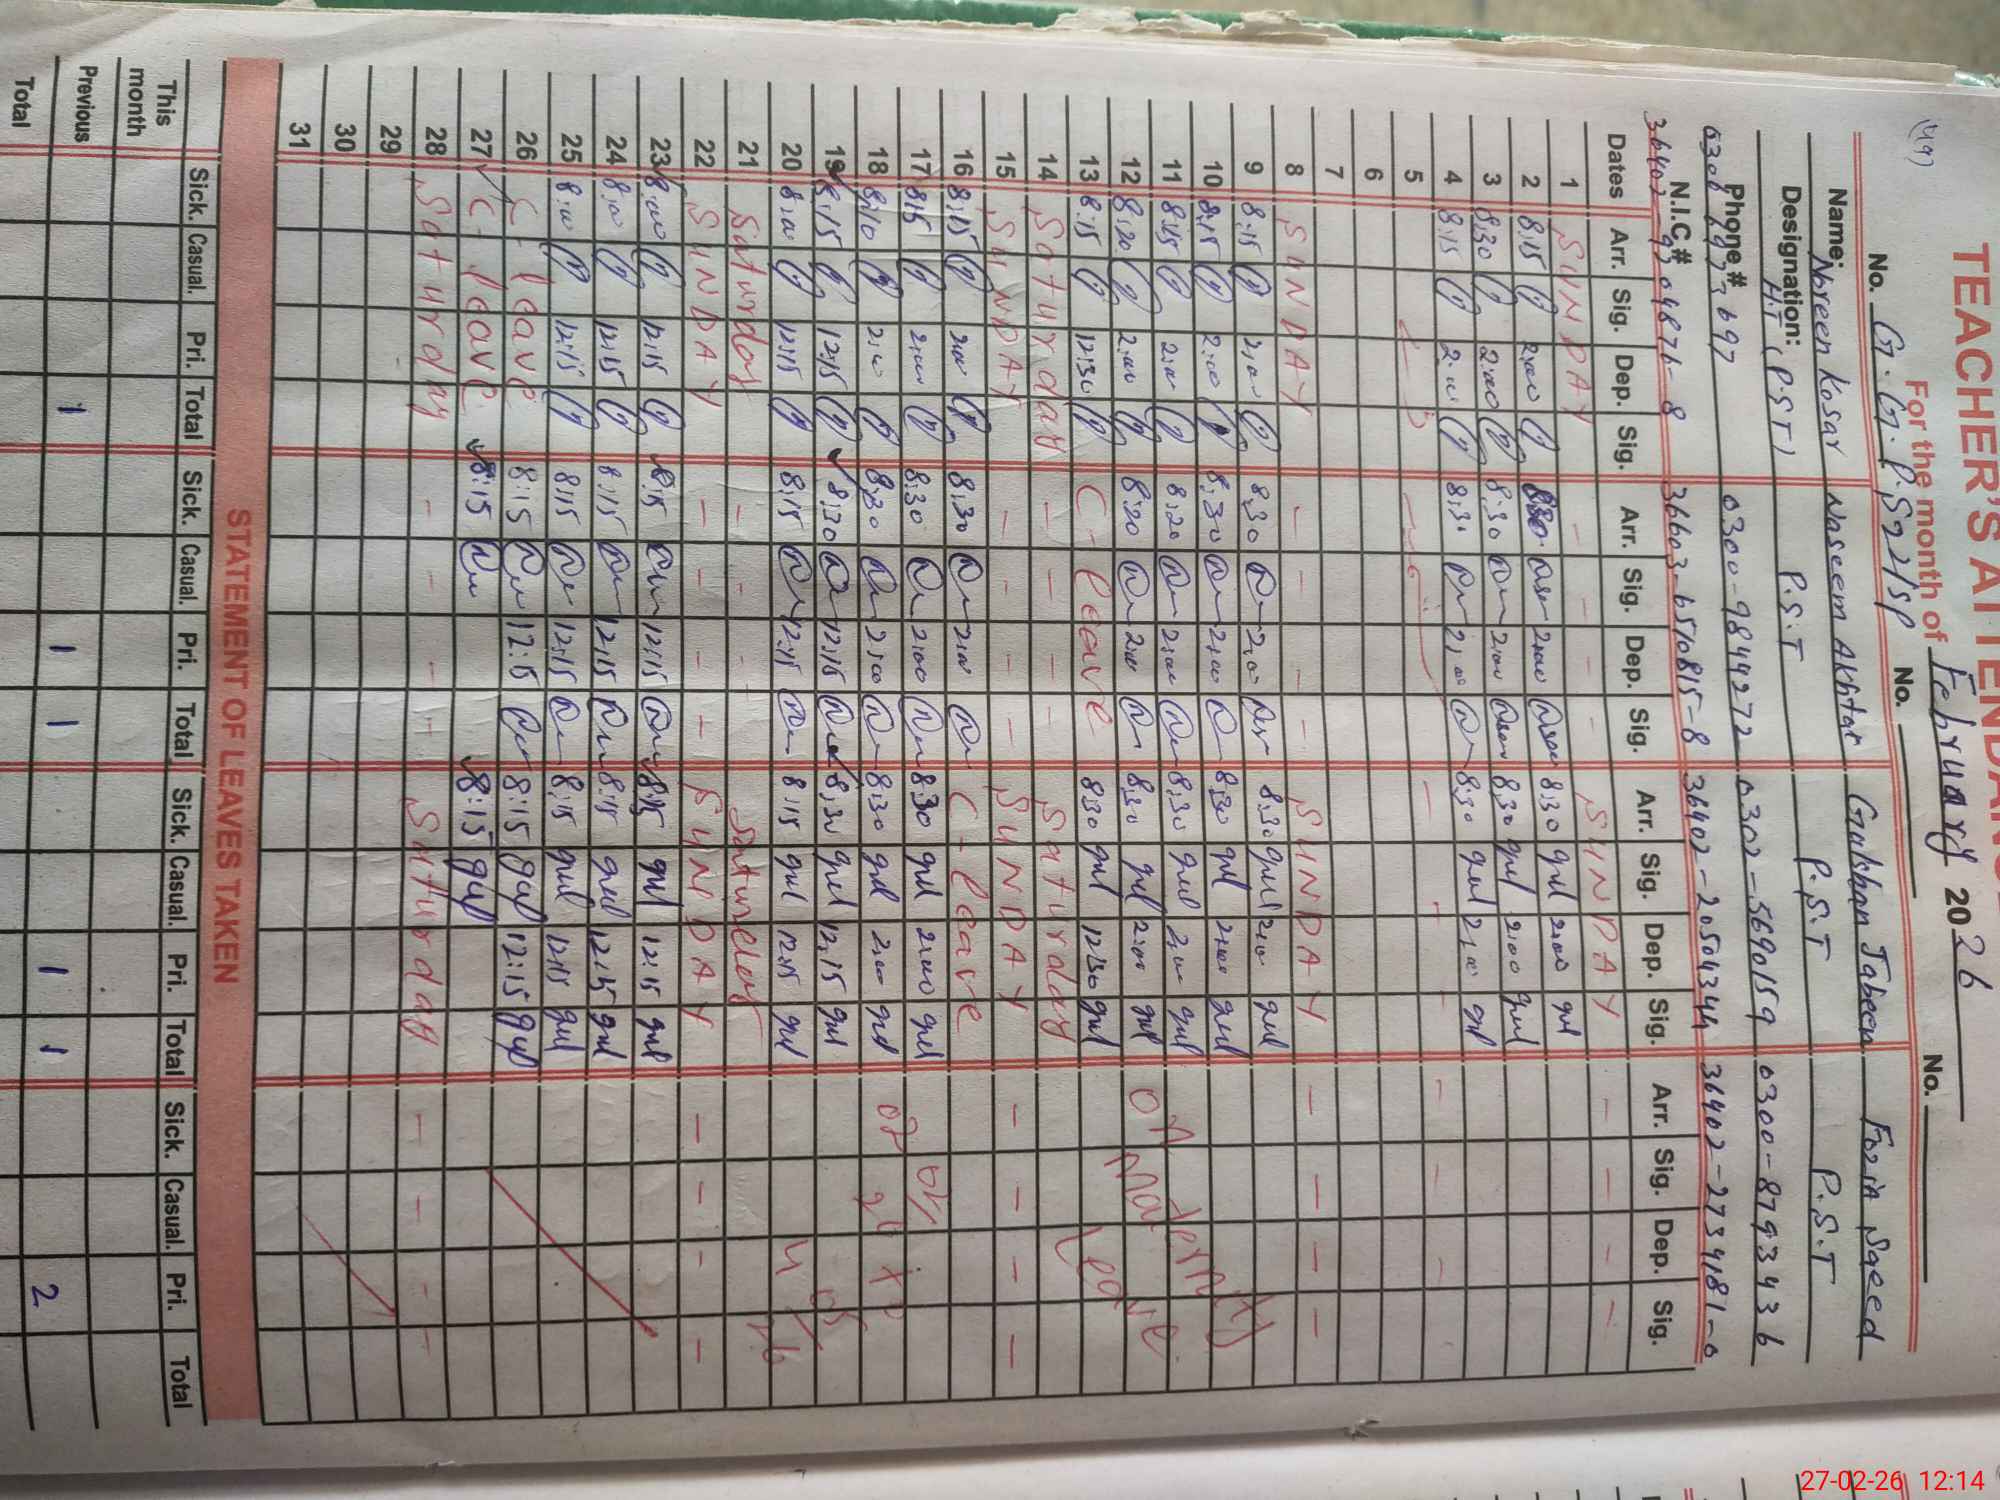 (49)
TEACHER'S ATTENDANCE
For the month of February 2026
No. G.G.P.S 22/SP No. No.
Name: Noreen Kosar Naseem Akhtar Gulshan Jabeen Fozia Saeed
Designation: H.T (P.S.T) P.S.T P.S.T P.S.T
Phone# 0300-9844272 0302-5690159 0300-8793436
N.I.C# 36603-6510815-8 36402-2050434-4 36402-2739481-0
Dates Arr. Sig. Dep. Sig. Arr. Sig. Dep. Sig. Arr. Sig. Dep. Sig. Arr. Sig. Dep. Sig.
1 SUNDAY - - - - SUNDAY - - - -
2 8:15 2:00 8:30 2:00 8:30 gul 2:00 gul
3 8:30 2:00 8:30 2:00 8:30 gul 2:00 gul
4 8:15 2:00 8:30 2:00 8:30 gul 2:00 gul
5
6
7
8 SUNDAY - - - - SUNDAY - - - -
9 8:15 2:00 8:30 2:00 8:30 gul 2:00 gul
10 8:15 2:00 8:30 2:00 8:30 gul 2:00 gul
11 8:15 2:00 8:20 2:00 8:30 gul 2:00 gul
12 8:20 2:00 8:20 2:00 8:30 gul 2:00 gul
13 8:15 12:30 C-leave 8:30 gul 12:30 gul
14 Saturday - - - - Saturday
15 SUNDAY - - - - SUNDAY - - - -
16 8:15 2:00 8:30 2:00 C-leave
17 8:15 2:00 8:30 2:00 8:30 gul 2:00 gul
18 8:10 2:00 8:30 2:00 8:30 gul 2:00 gul
19 8:15 12:15 8:30 12:15 8:30 gul 12:15 gul
20 8:00 12:15 8:15 12:15 8:15 gul 12:15 gul
21 Saturday - - - - Saturday
22 SUNDAY - - - - SUNDAY - - - -
23 8:00 12:15 8:15 12:15 8:15 gul 12:15 gul
24 8:00 12:15 8:15 12:15 8:15 gul 12:15 gul
25 8:00 12:15 8:15 12:15 8:15 gul 12:15 gul
26 C-leave 8:15 12:15 8:15 gul 12:15 gul
27 C-leave 8:15 8:15 gul
28 Saturday - - - - Saturday - - - -
29
30
31
on Maternity Leave
STATEMENT OF LEAVES TAKEN
Sick. Casual. Pri. Total Sick. Casual. Pri. Total Sick. Casual. Pri. Total Sick. Casual. Pri. Total
This month
Previous 1 1 1 1 1 2
Total
27-02-26 12:14